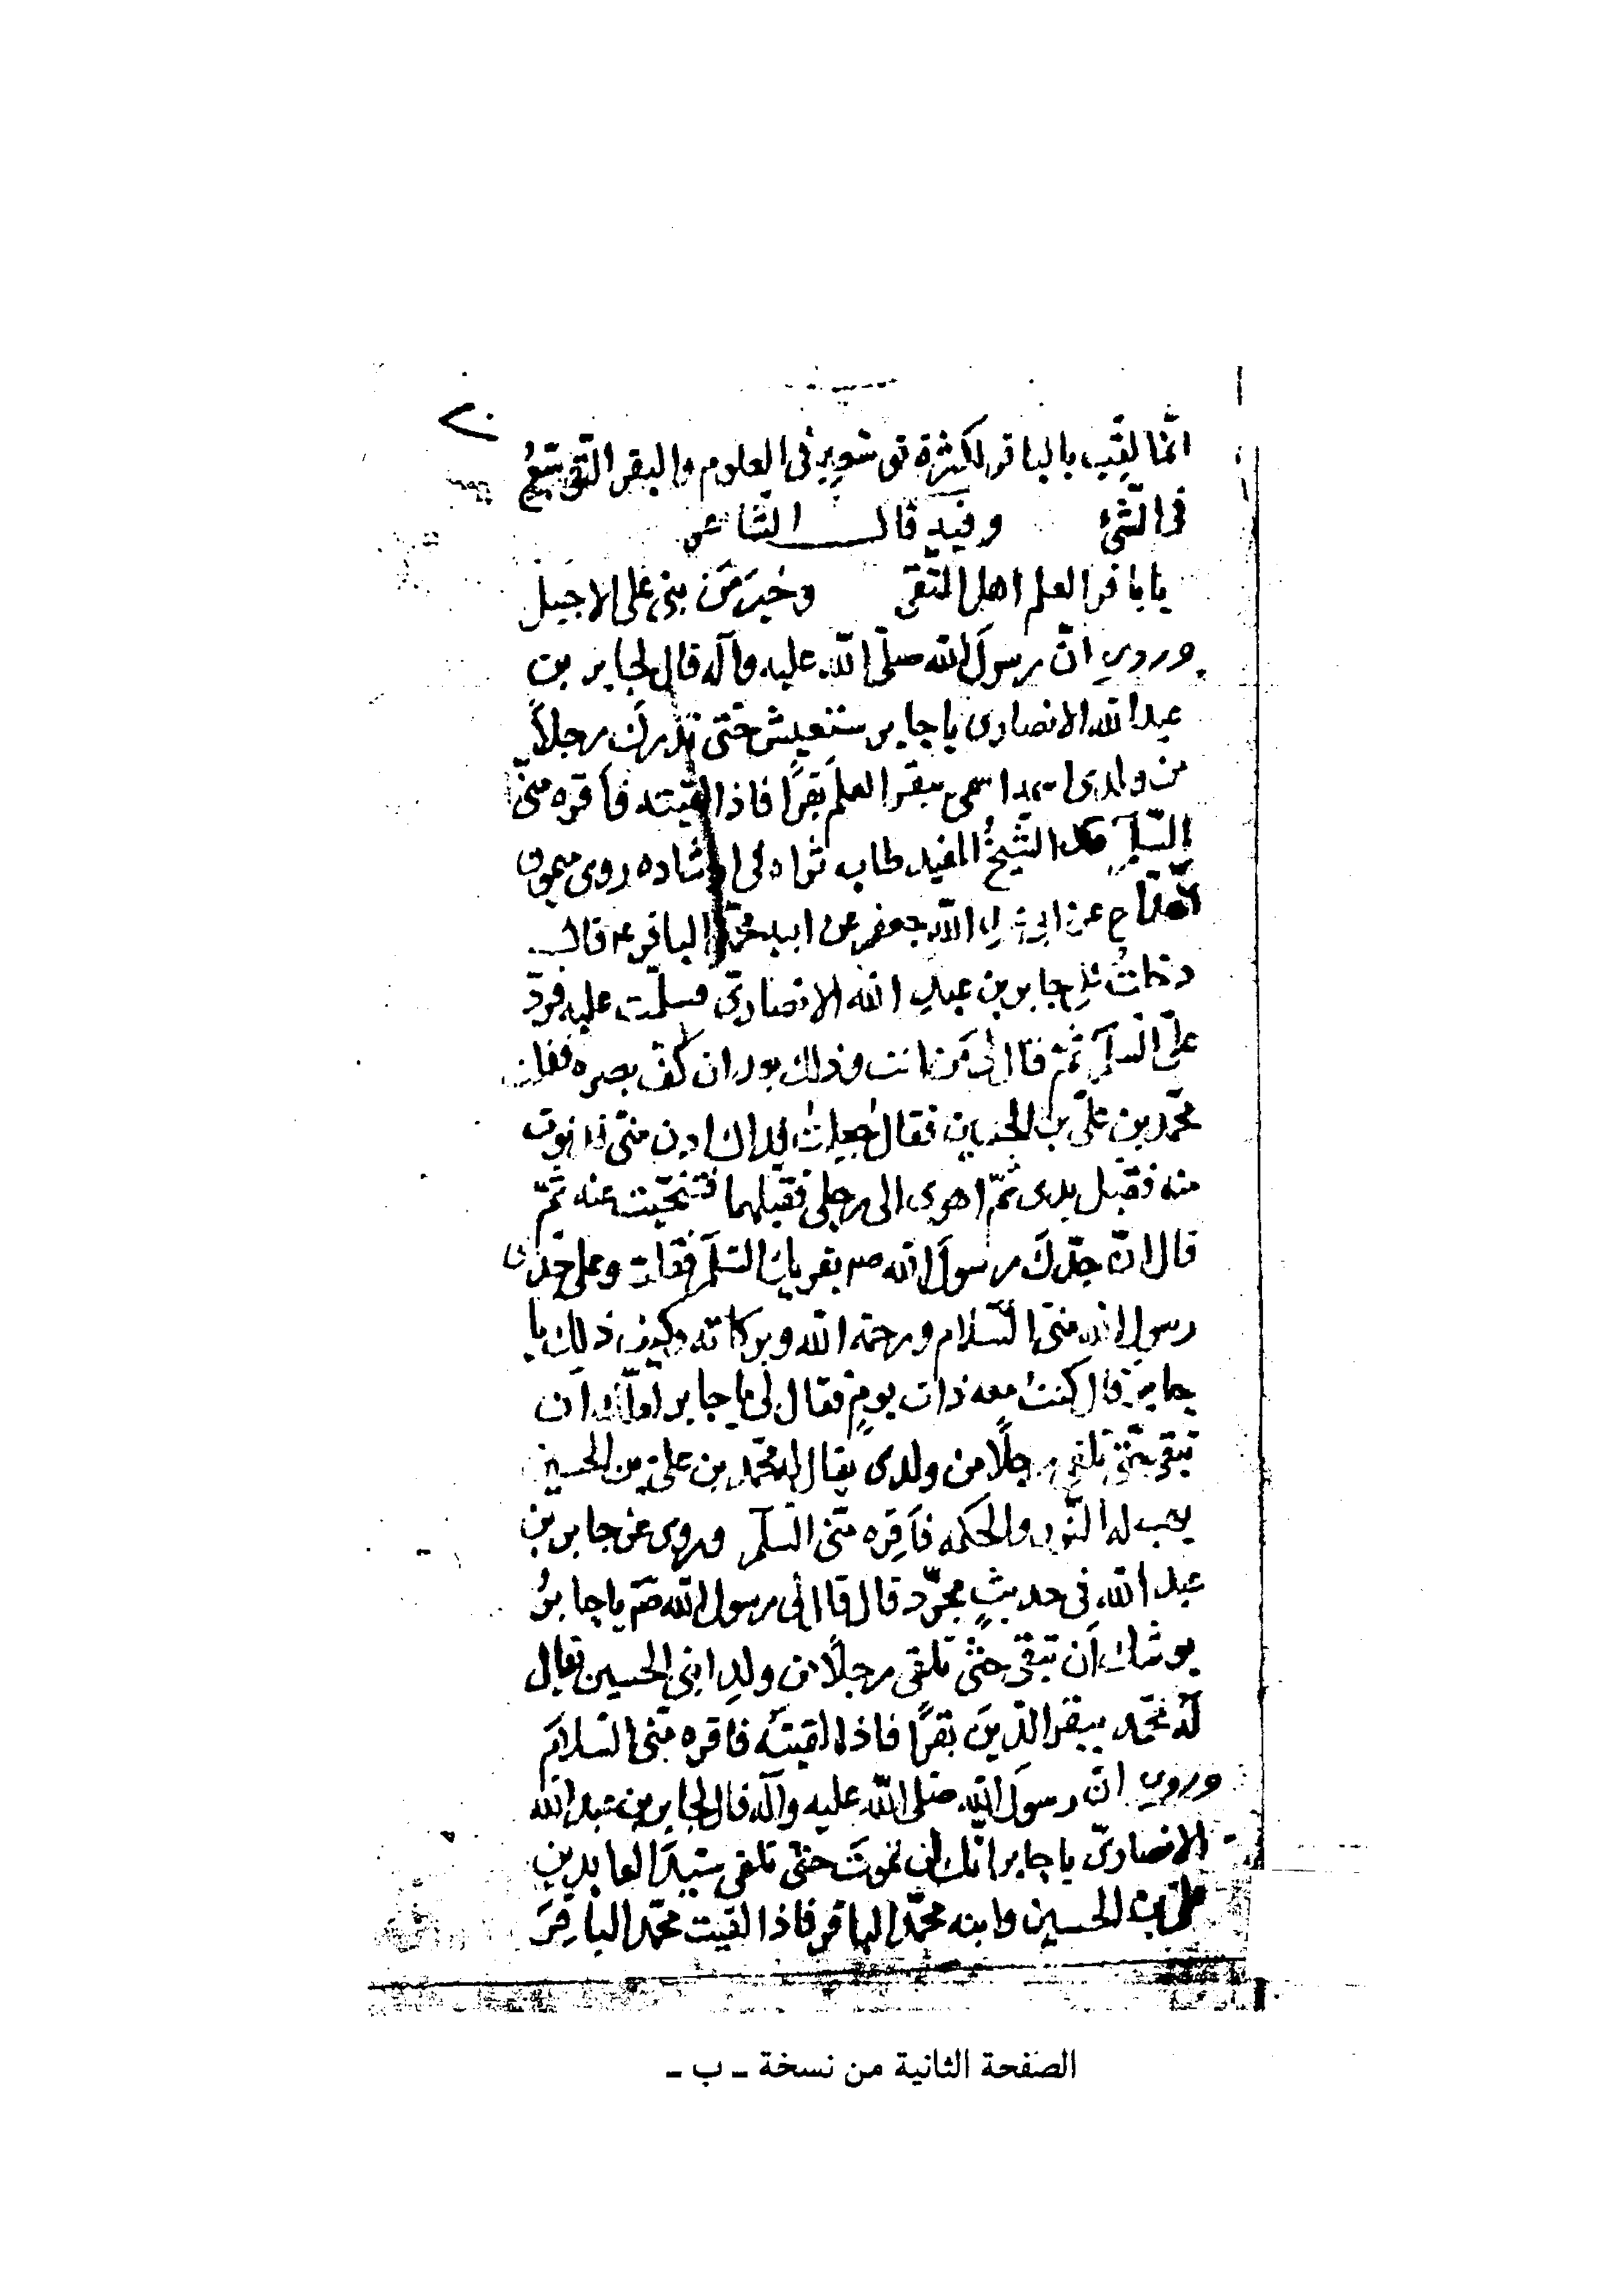 انّما لقّب بالباقر لكثرة توسّعه في العلوم والبقر التّوسّع
في الشّئ وفيه قال الشّاعر
يا باقر العلم اهل التّقى وخير من بنى على الاجبل
وروي انّ رسول الله صلّى الله عليه وآله قال لجابر بن
عبد الله الانصارى يا جابر ستعيش حتّى تدرك رجلاً
من ولدى اسمه اسمى يبقر العلم بقراً فاذا لقيته فأقره منّى
السّلم الشّيخ المفيد طاب ثراه في ارشاده روى ميمون
القدّاح عن ابى عبد الله جعفر عن ابيه محمّد الباقر ع قال
دخلتُ على جابر بن عبد الله الانصاريّ فسلّمت عليه فردّ
علىّ السلم ثمّ قال لى من انت وذلك بعد ان كفّ بصره فقلت
محمّد بن علىّ بن الحسين فقال جعلت فداك ادن منّى فدنوت
منه فقبّل يدى ثمّ اهوى الى رجلى فقبّلهما فتنحّيت عنه ثمّ
قال انّ جدّك رسول الله صم يقريك السّلم فقلت وعلى جدّى
رسول الله منّى السّلام ورحمة الله وبركاته وكيف ذلك يا
جابر قال كنت معه ذات يومٍ فقال لى يا جابر لعلّك ان
تبقى حتّى تلقى رجلًا من ولدى يقال له محمّد بن علىّ بن الحسين
يهب له النّور والحكمه فأقره منّى السّلم وروى عن جابر بن
عبد الله في حديثٍ مجرّد قال قال لى رسول الله صم يا جابرُ
يوشك أن تبقى حتّى تلقى رجلًا من ولد ابنى الحسين يقال
له محمّد يبقر الدّين بقرًا فاذا لقيته فاقره منّى السّلام
وروي انّ رسول الله صلّى الله عليه وآله قال لجابر بن عبد الله
الانصاريّ يا جابر انّك لن تموت حتّى تلقى سيّد العابدين
علىّ بن الحسين وابنه محمّد الباقر فاذا لقيت محمّد الباقر
الصفحة الثانية من نسخة ـ ب ـ